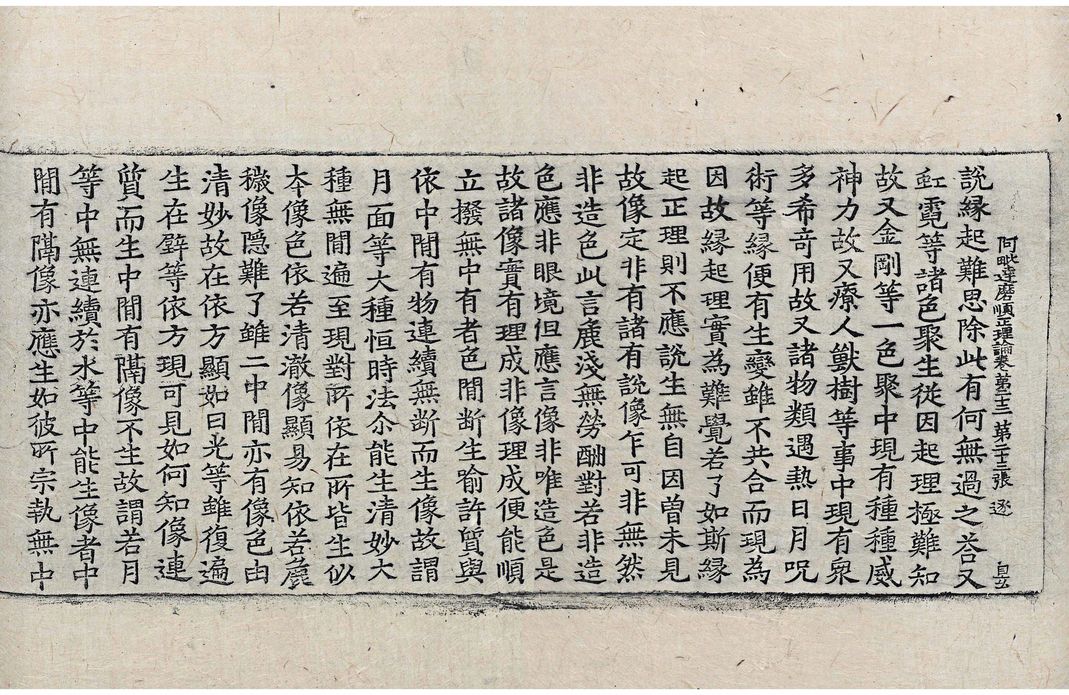 阿毗達磨順正理論卷第二十三 第二十三張 逐
說緣起難思除此有何無過之荅又
虹霓等諸色聚生從因起理極難知
故又金剛等一色聚中現有種種威
神力故又療人獸樹等事中現有衆
多希竒用故又諸物類遇熱日月呪
術等緣便有生變雖不共合而現為
因故緣起理實為難覺若了如斯緣
起正理則不應說生無自因曽未見
故像定非有諸有說像乍可非無然
非造色此言麁淺無勞酬對若非造
色應非眼境但應言像非唯造色是
故諸像實有理成非像理成便能順
立撥無中有者色間断生喻許質與
依中間有物連續無断而生像故謂
月面等大種恒時法尒能生清妙大
種無間遍至現對所依在所皆生似
本像色依若清澈像顯易知依若麁
穢像隱難了雖二中間亦有像色由
清妙故在依方顯如日光等雖復遍
生在壁等依方現可見如何知像連
質而生中間有隔像不生故謂若月
等中無連續於水等中能生像者中
間有隔像亦應生如彼所宗執無中